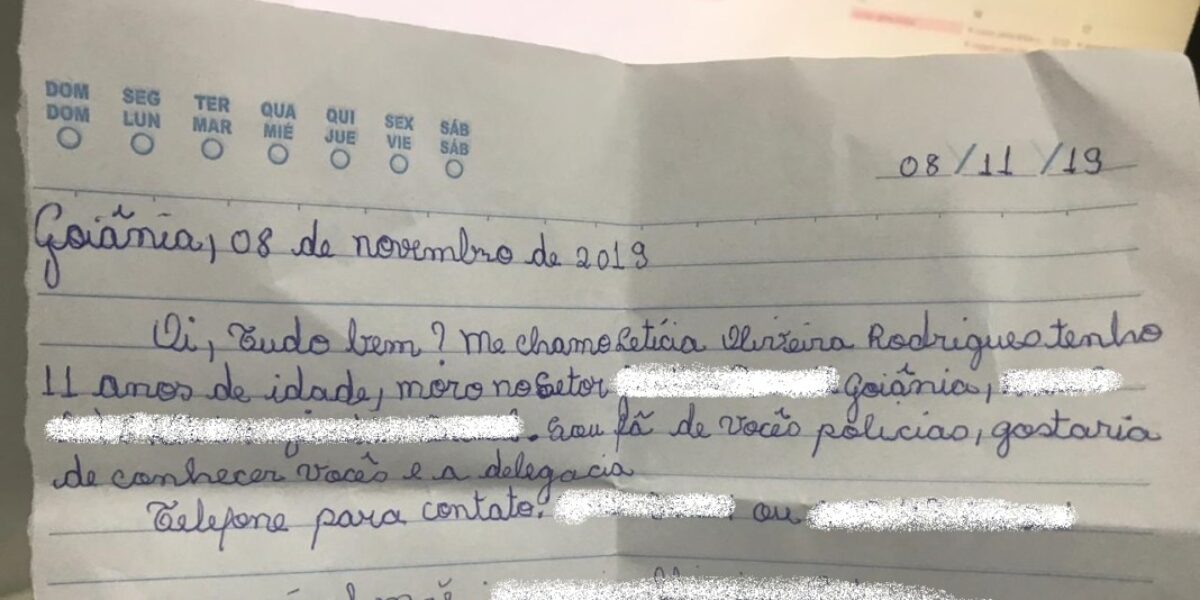 DOM SEG TER QUA QUI SEX SÁB
DOM LUN MAR MIÉ JUE VIE SÁB
08/11/19
Goiânia, 08 de novembro de 2019
Oi, Tudo bem? Me chamo Letícia Oliveira Rodrigues tenho
11 anos de idade, moro no Setor Goiânia,
. Sou fã de vocês policias, gostaria
de conhecer vocês e a delegacia
Telefone para contato: ou